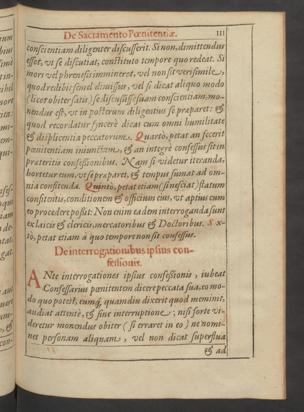 De Sacramento Pœnitentiæ. 111
conscientiam diligenter discusserit. Si non, dimittendus
esset, vt se discutiat, constituto tempore quo redeat. Si
mors vel phrenesis immineret, vel non sit verisimile,
quod redibit semel diuissus, vel si dicat aliquo modo
(licet obiter satis) se discussisse suam conscientiam, mo-
nendus est, vt in posterum diligentius se præparet: &
quod recordatur syncerè dicat cum omni humilitate
& displicentia peccatorum. Quartò, petat an fecerit
pœnitentiam iniunctam, & an integrè confessus sit in
præteritis confessionibus. Nam si videtur iteranda,
hortetur eum, vt se præparet, & tempus sumat ad om-
nia confitenda. Quintò, petat etiam (si nesciat) statum
confitentis, conditionem & officium eius, vt aptius cum
eo procedere possit: Non enim eadem interroganda sunt
ex laicis & clericis, mercatoribus & Doctoribus. Sex-
tò, petat etiam à quo tempore non sit confessus.
De interrogationibus ipsius con-
fessionis.
ANte interrogationes ipsius confessionis, iubeat
Confessarius pœnitentem dicere peccata sua, eo mo-
do quo potest, eumq, quamdiu dixerit quod meminit,
audiat attentè, & sine interruptione, nisi forte vi-
deretur monendus obiter (si erraret in eo) ne nomi-
net personam aliquam, vel non dicat superflua
& ad